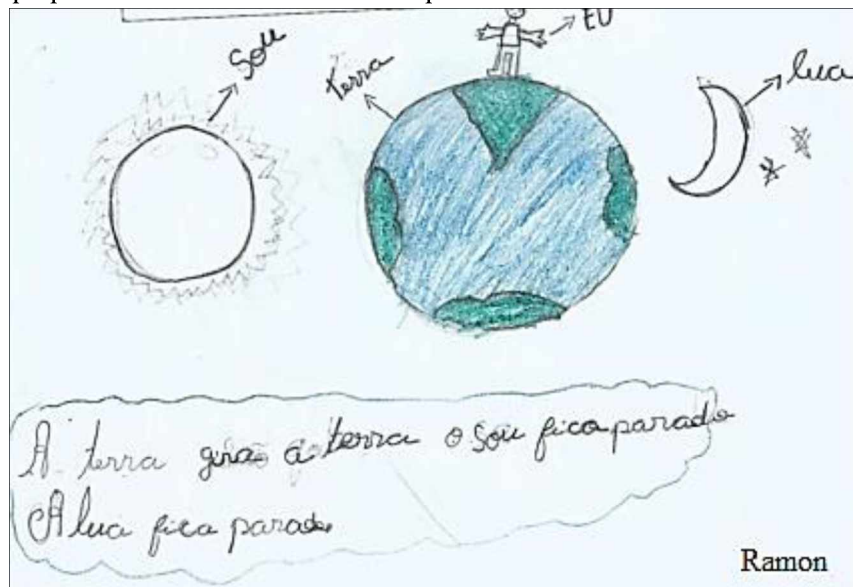 EU
Sou
terra
lua
A terra gira a terra o sou fica parado
A lua fica parada
Ramon